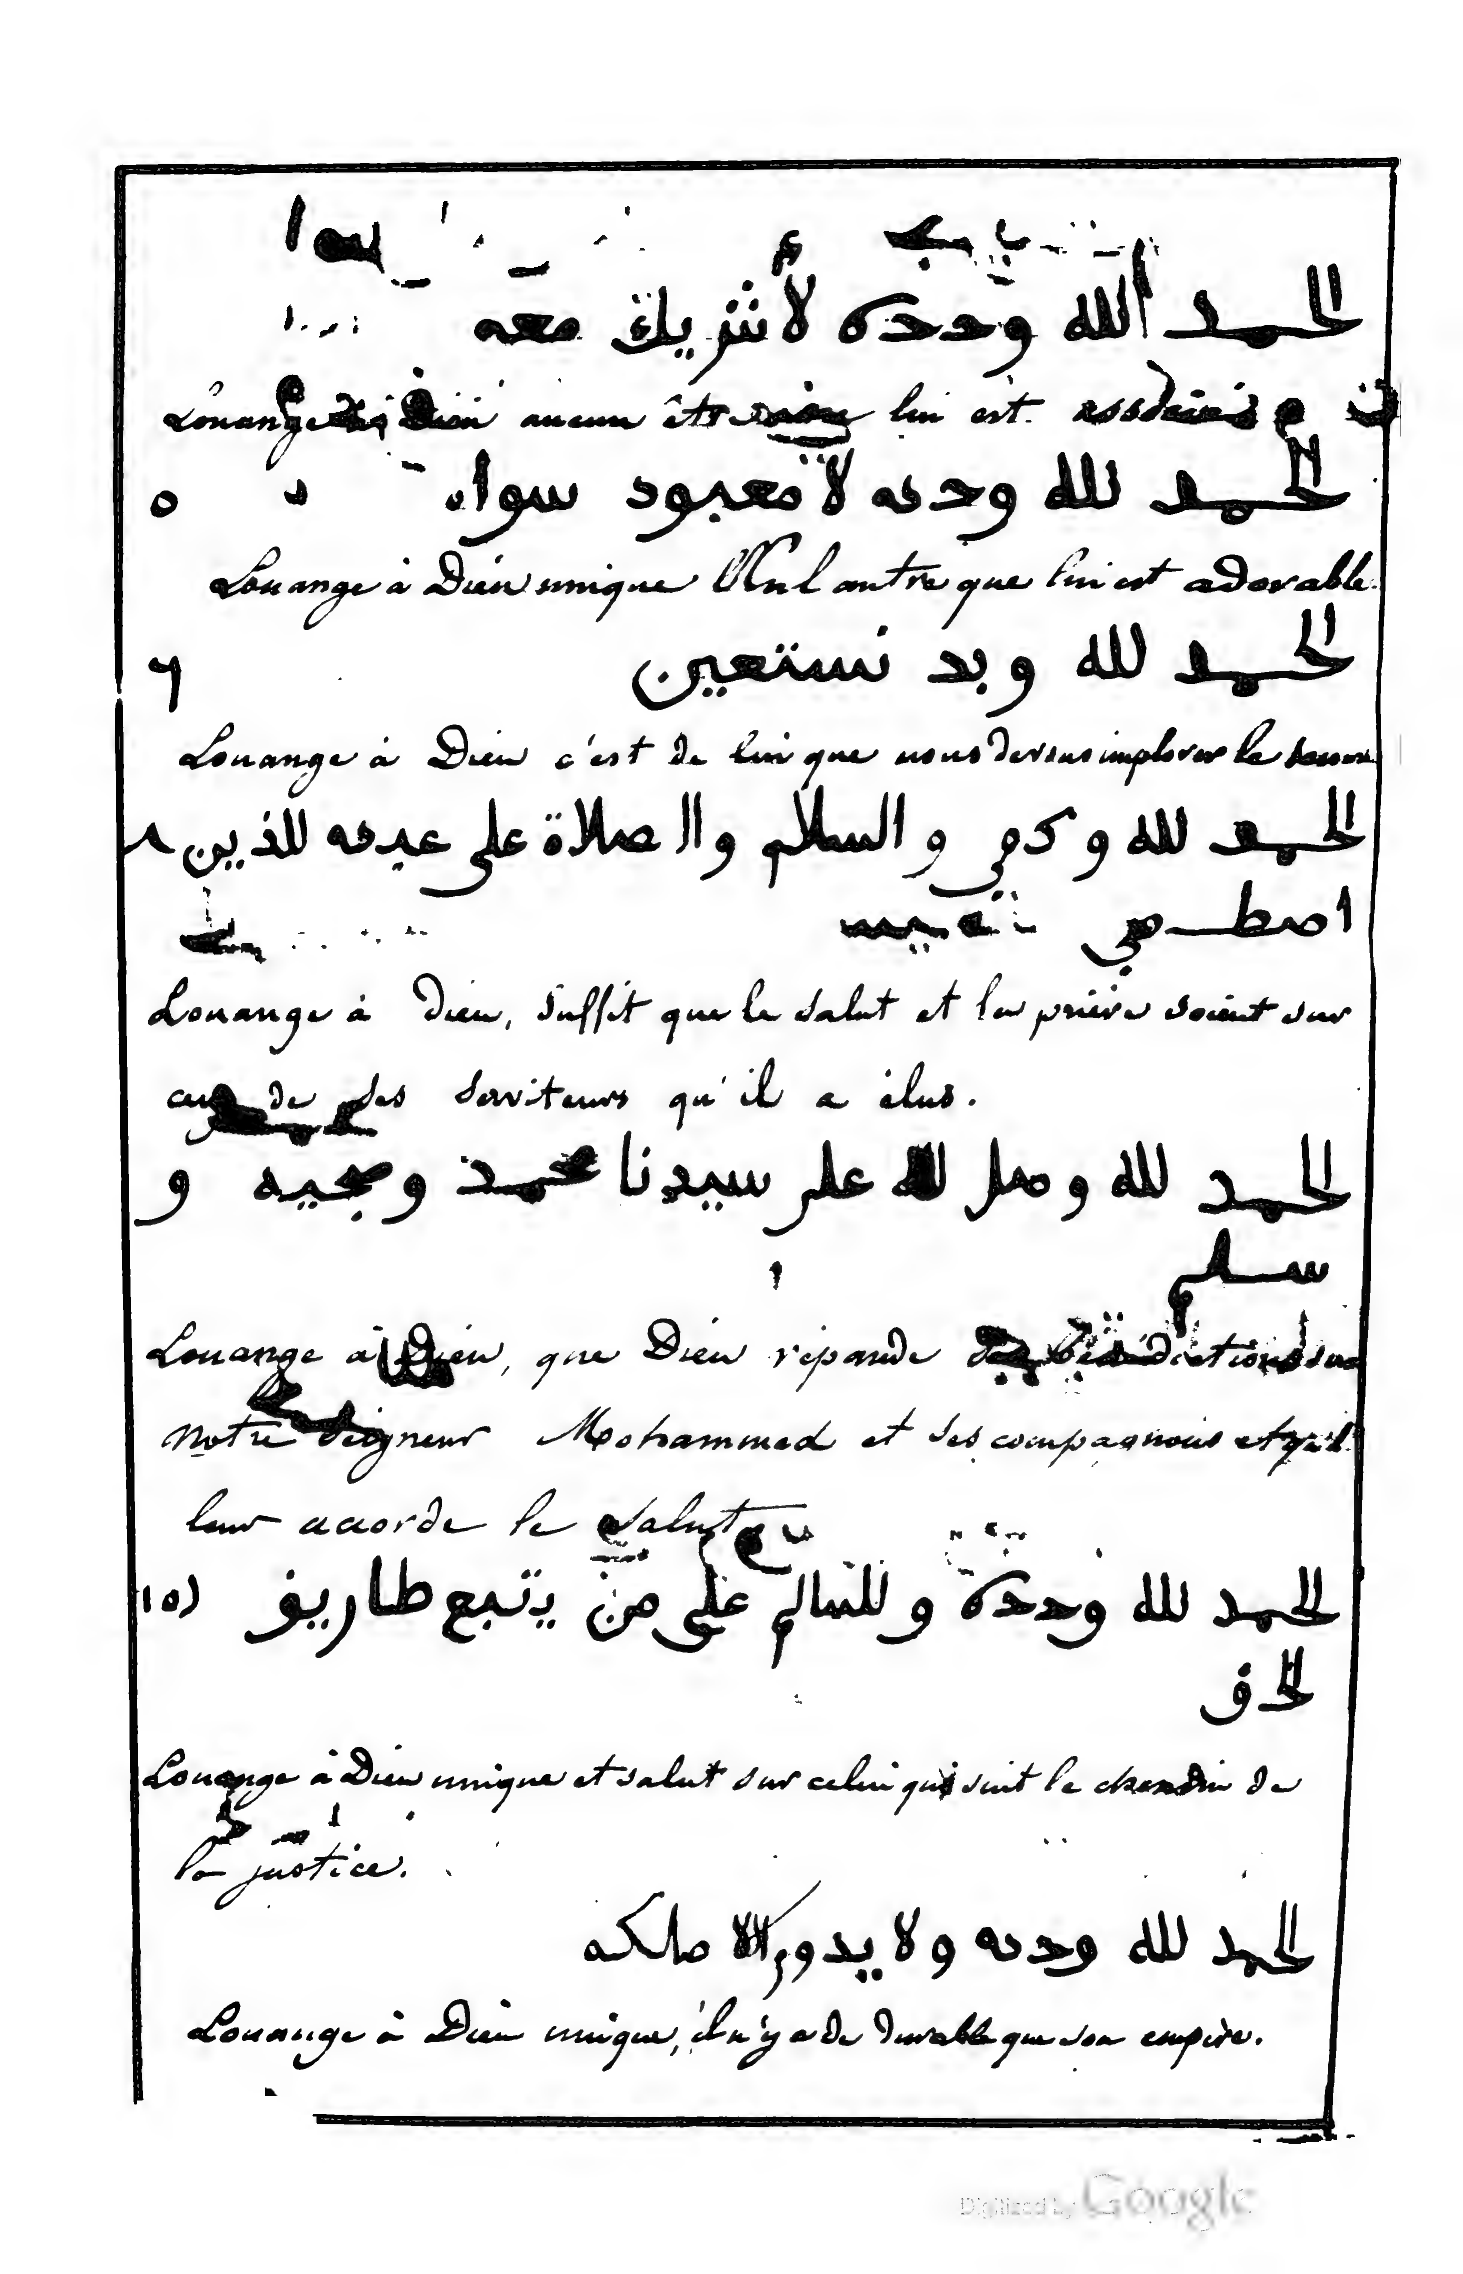 الحمد لله وحده لا شريك معه
Louange à Dieu aucun être lui est associé
الحمد لله وحده لا معبود سواه
Louange à Dieu unique Nul autre que lui est adorable.
الحمد لله وبه نستعين
Louange à Dieu c'est de lui que nous devons implorer le
الحمد لله وكفى والسلام والصلاة على عبده للذين
اصطفى
Louange à Dieu, suffit que le salut et la prière soient sur
ceux de ses serviteurs qu'il a élus.
الحمد لله وصل الله على سيدنا محمد و
سلم
Louange à Dieu, que Dieu répande des bénédictions sur
notre Seigneur Mohammed et ses compagnons et qu'il
leur accorde le salut
الحمد لله وحده وللسالم على من يتبع طاريف
الحق
Louange à Dieu unique et salut sur celui qui suit le chemin de
la justice.
الحمد لله وحده ولا يدور الا ملكه
Louange à Dieu unique, il n'y a de durable que son empire.
Digitized by Google